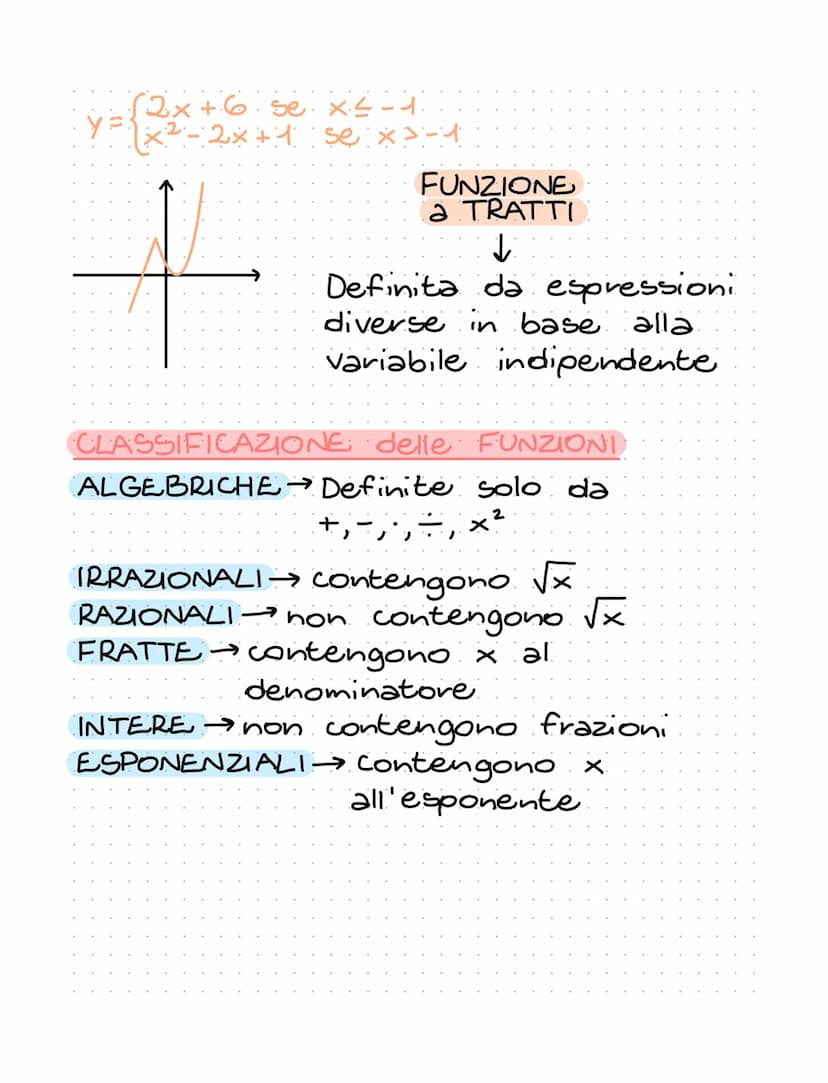 y = { 2x + 6 se x ≤ -1
x² - 2x + 1 se x > -1
FUNZIONE
a TRATTI
↓
Definita da espressioni
diverse in base alla
variabile indipendente
CLASSIFICAZIONE delle FUNZIONI
ALGEBRICHE → Definite solo da
+, -, ·, ÷, x²
IRRAZIONALI → contengono √x
RAZIONALI → non contengono √x
FRATTE → contengono x al
denominatore
INTERE → non contengono frazioni
ESPONENZIALI → contengono x
all'esponente